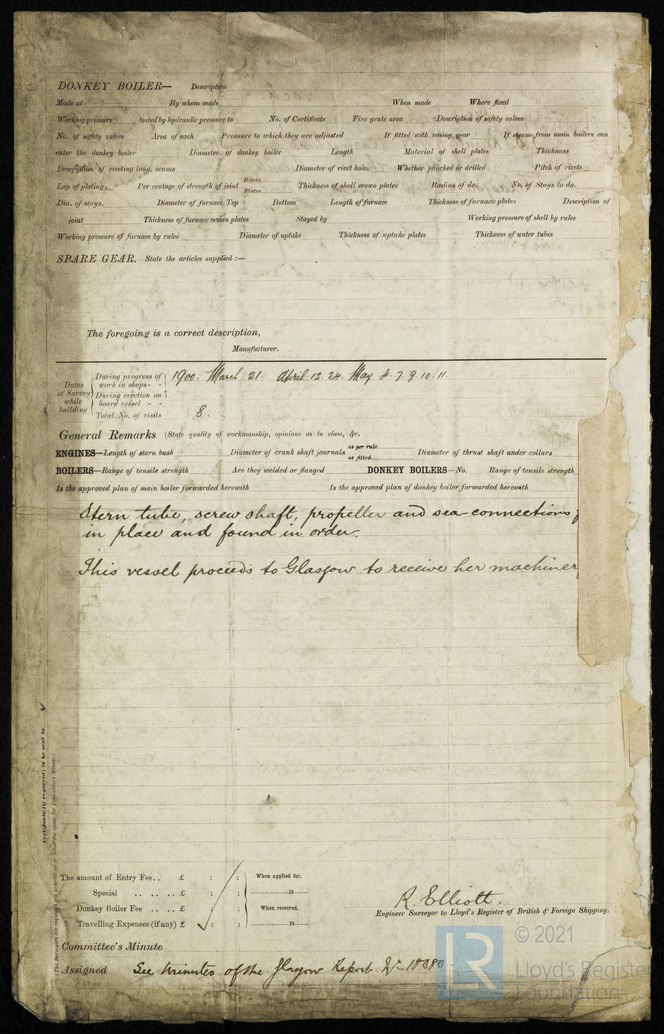 DONKEY BOILER— Description
Made at By whom made When made Where fixed
Working pressure tested by hydraulic pressure to No. of Certificate Fire grate area Description of safety valves
No. of safety valves Area of each Pressure to which they are adjusted If fitted with easing gear If steam from main boilers can
enter the donkey boiler Diameter of donkey boiler Length Material of shell plates Thickness
Description of riveting long. seams Diameter of rivet holes Whether punched or drilled Pitch of rivets
Lap of plating Per centage of strength of joint Rivets Plates Thickness of shell crown plates Radius of do. No. of Stays to do.
Dia. of stays. Diameter of furnace Top Bottom Length of furnace Thickness of furnace plates Description of
joint Thickness of furnace crown plates Stayed by Working pressure of shell by rules
Working pressure of furnace by rules Diameter of uptake Thickness of uptake plates Thickness of water tubes
SPARE GEAR. State the articles supplied :—
The foregoing is a correct description,
Manufacturer.
Dates of Survey while building
During progress of work in shops - - 1900. March 21. April 12. 24. May 4. 7. 9. 10. 11
During erection on board vessel - - -
Total No. of visits 8.
General Remarks (State quality of workmanship, opinions as to class, &c.
ENGINES—Length of stern bush Diameter of crank shaft journals as per rule as fitted Diameter of thrust shaft under collars
BOILERS—Range of tensile strength Are they welded or flanged DONKEY BOILERS—No. Range of tensile strength
Is the approved plan of main boiler forwarded herewith Is the approved plan of donkey boiler forwarded herewith
Stern tube, screw shaft, propeller and sea connections
in place and found in order.
This vessel proceeds to Glasgow to receive her machiner
Certificate (if required) to be sent to
The amount of Entry Fee.. £ : : When applied for,
Special .. .. .. £ : : 18
Donkey Boiler Fee .. .. £ : : When received,
Travelling Expenses (if any) £ : : 18
R. Elliott.
Engineer Surveyor to Lloyd's Register of British & Foreign Shipping.
Committee's Minute
Assigned See minutes of the Glasgow Report No 18080
LR
© 2021
Lloyd's Register
Foundation